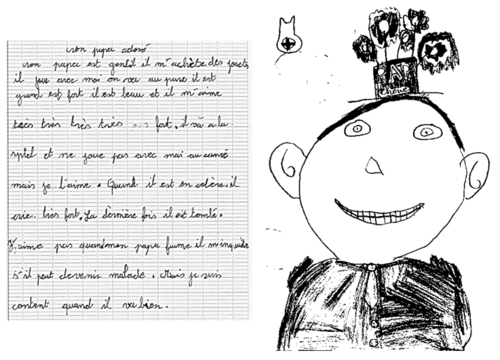 mon papa adoré
mon papa est gentil il m'achète des jouets
il joue avec moi on va au parc il est
grand est fort il est beau et il m'aime
très très très très fort. il va a la
et ne joue pas avec moi au
mais je l'aime. Quand il est en colère. il
crie très fort. La dernière fois il est tombé.
J'aime pas quand mon papa fume il m'inquiète
s'il peut devenir malade. Mais je suis
content quand il va bien.
chérie